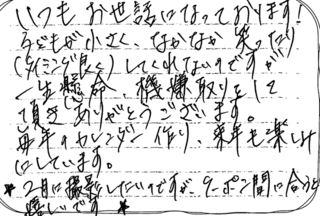 いつもお世話になっております!
子どもが小さく、なかなか笑ったり
(タイミング良く)してくれないのですが
一生懸命、機嫌取りをして
頂きありがとうございます。
毎年のカレンダー作り、来年も楽しみ
にしています。
*2月に撮影したいのですが、クーポン間に合うと
嬉しいです*